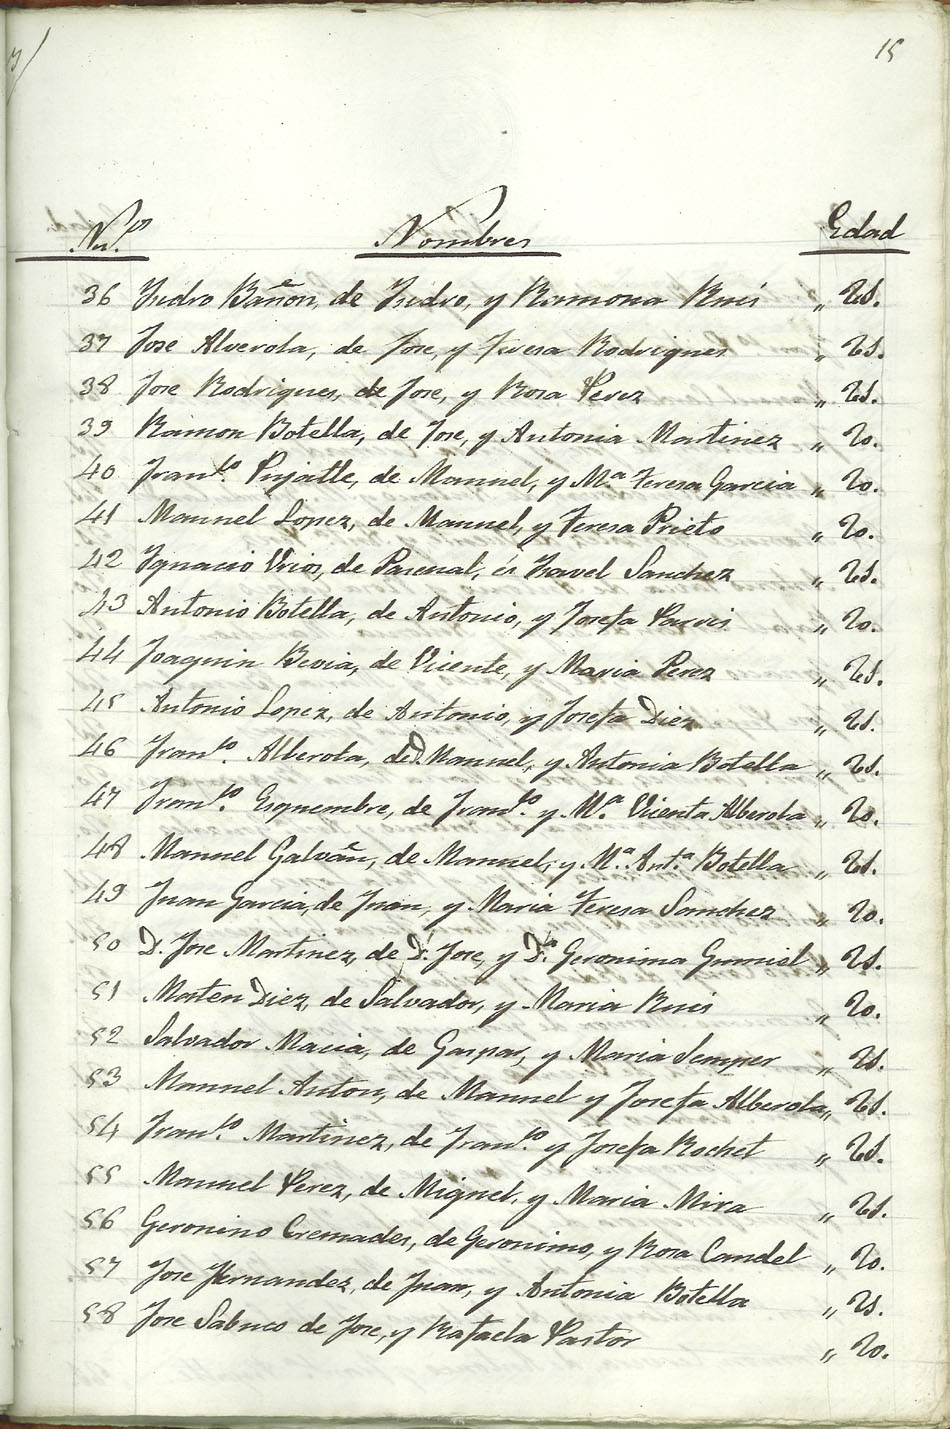 15
Nu.º Nombres Edad
36 Isidro Bañon, de Isidro, y Ramona Ruis " 21.
37 Jose Alverola, de Jose, y Teresa Rodrigues " 21.
38 Jose Rodrigues, de Jose, y Rosa Perez " 21.
39 Ramon Botella, de Jose, y Antonia Martinez " 20.
40 Franco. Pujalte, de Manuel, y Mª Teresa Garcia " 20.
41 Manuel Lopez, de Manuel, y Teresa Prieto " 20.
42 Ignacio Vrios, de Pascual, é Ysavel Sanchez " 21.
43 Antonio Botella, de Antonio, y Josefa " 20.
44 Joaquin Bevia, de Vicente, y Maria Perez " 21.
45 Antonio Lopez, de Antonio, y Josefa Diez " 21.
46 Franco. Alberola, de D. Manuel, y Antonia Botella " 21.
47 Franco. Esquembre, de Franco. y M.ª Vicenta Alberola " 20.
48 Manuel Galvañ, de Manuel, y M.ª Ant.ª Botella " 21.
49 Juan Garcia, de Juan, y Maria Teresa Sanchez " 20.
50 D. Jose Martinez, de D. Jose, y D.ª Geronima Gumiel " 21.
51 Diez, de Salvador, y Maria Ruis " 20.
52 Salvador Macia, de Gaspar, y Maria Semper " 21.
53 Manuel Anton, de Manuel y Josefa Alberola " 21.
54 Franco. Martinez, de Franco. y Josefa Rochet " 21.
55 Manuel Perez, de Miguel, y Maria Mira " 21.
56 Geronino Cremades, de Geronimo, y Rosa Candel " 20.
57 Jose Hernandez, de Juan, y Antonia Botella " 21.
58 Jose Sabuco de Jose, y Rafaela Pastor " 20.